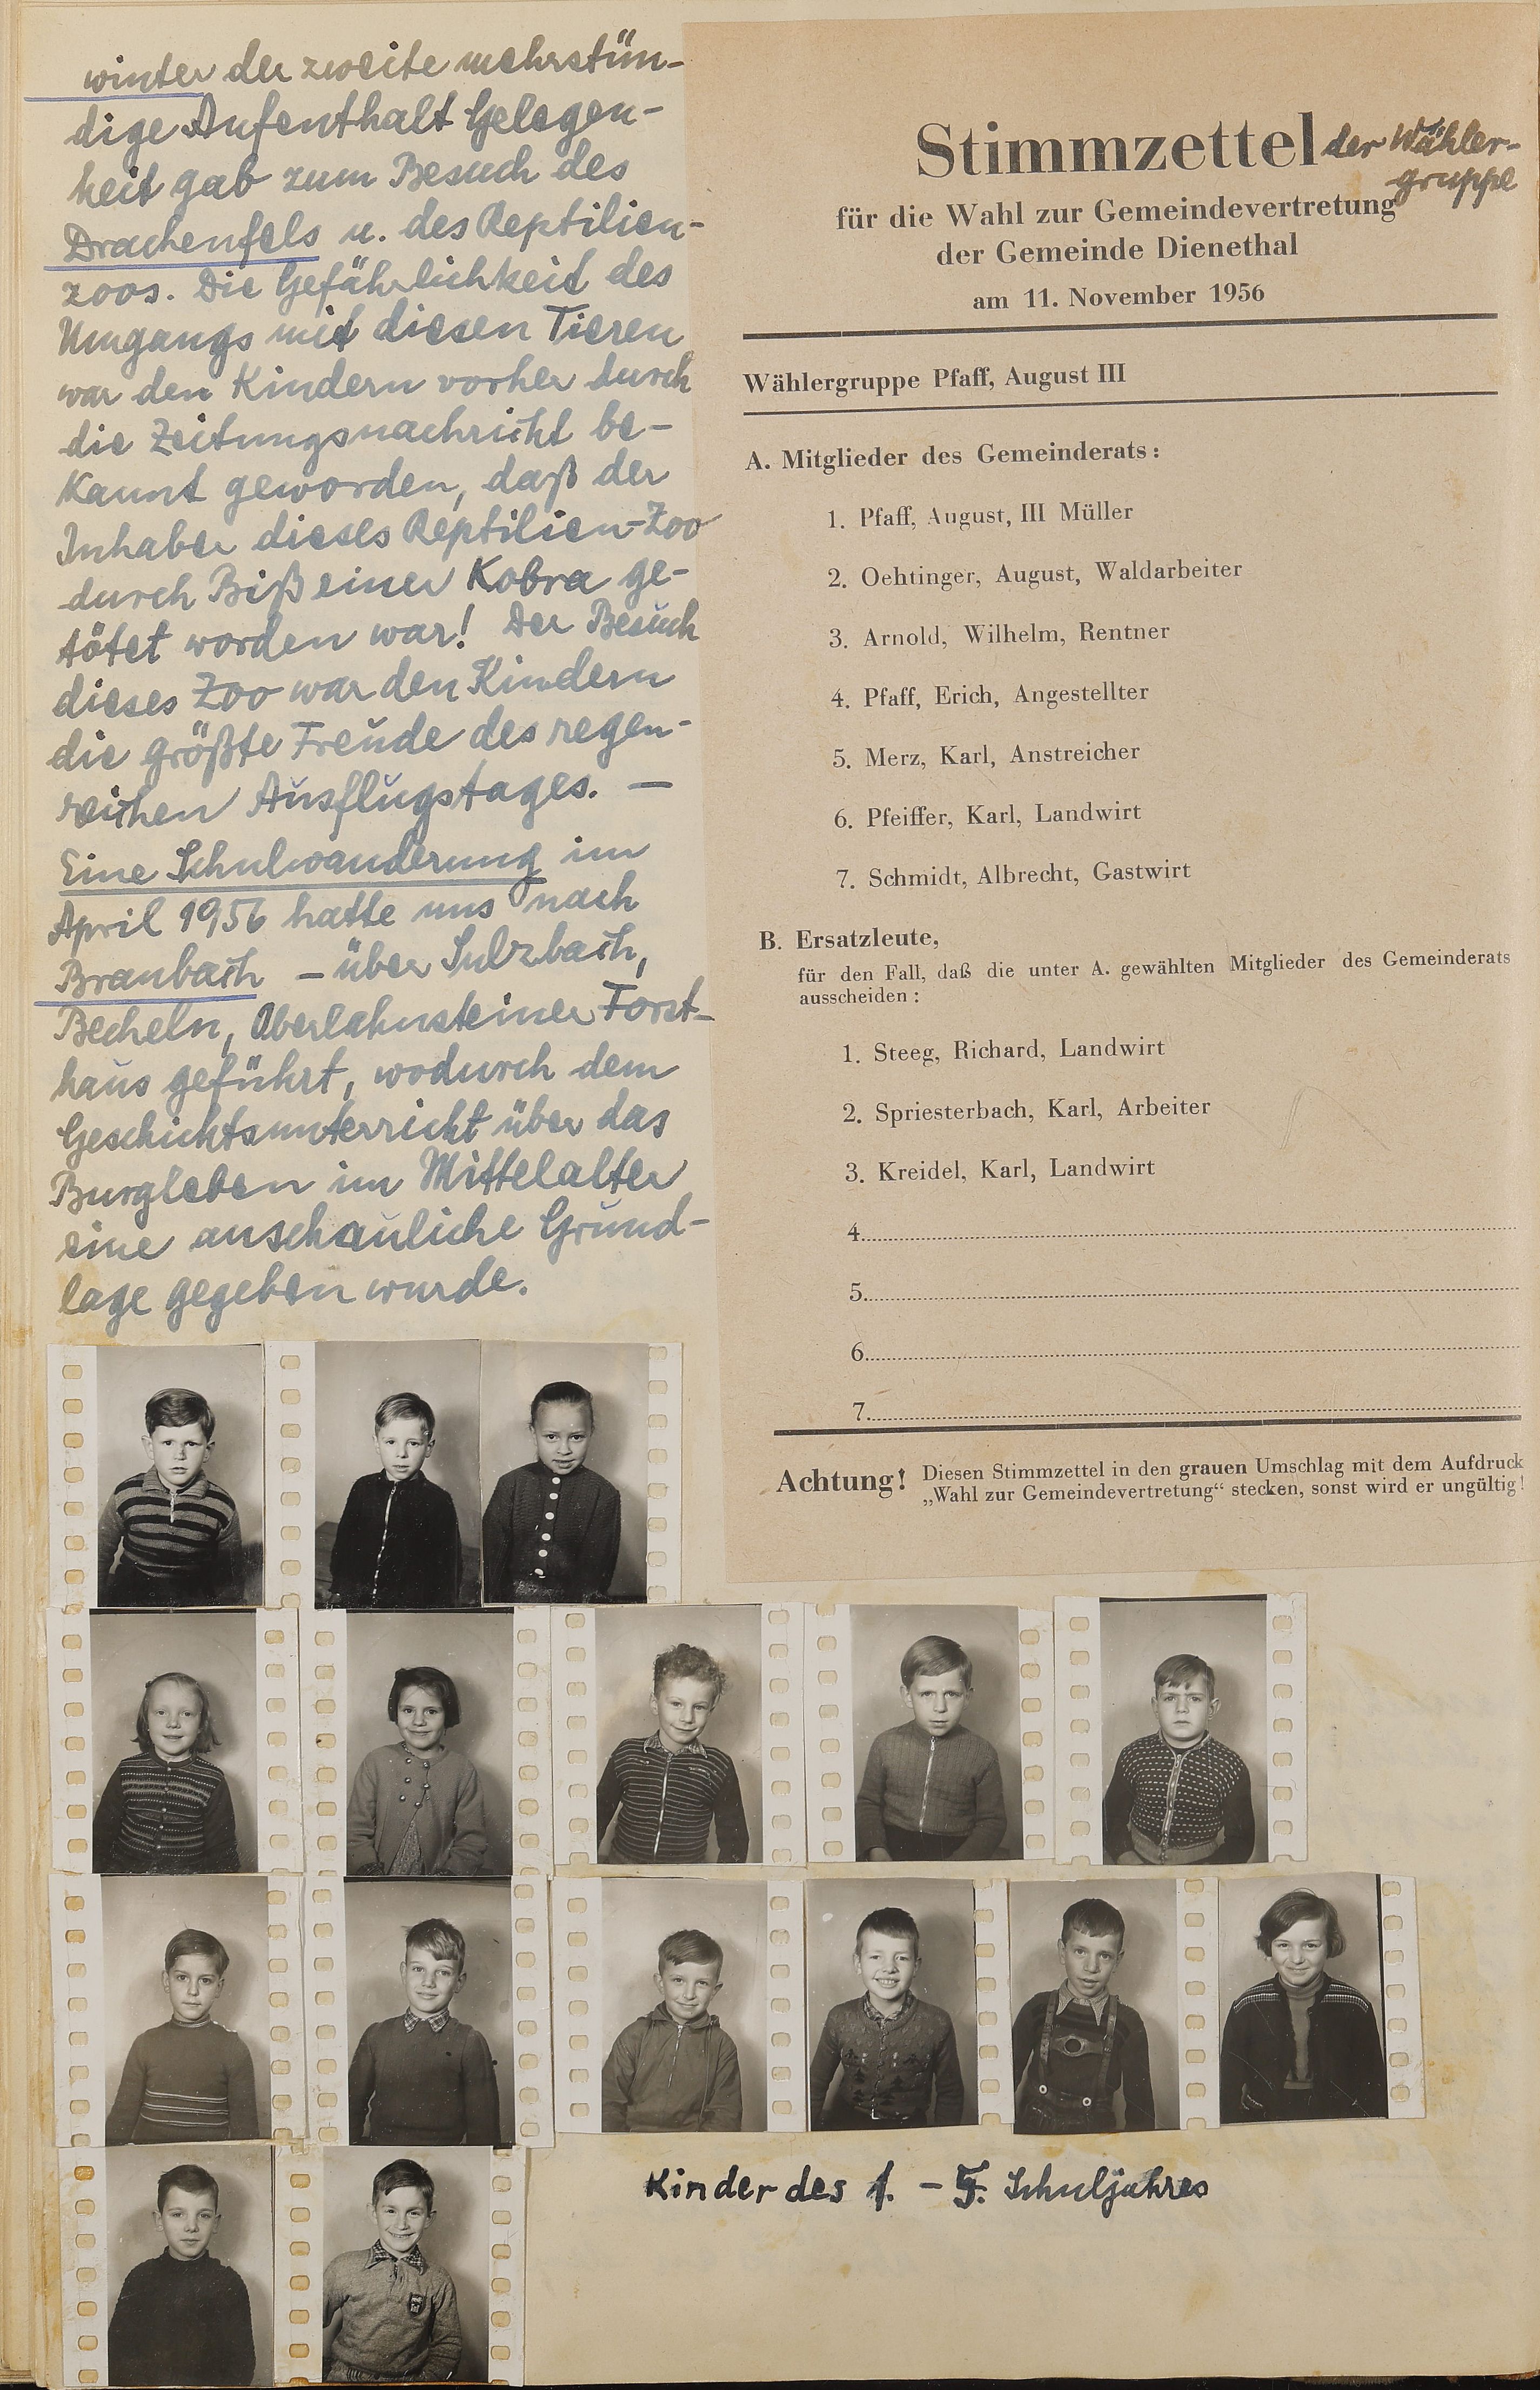 winter der zweite mehrstün-
dige Aufenthalt Gelegen-
heit gab zum Besuch des
Drachenfels u. des Reptilien-
zoos. Die Gefährlichkeit des
Umgangs mit diesen Tieren
war den Kindern vorher durch
die Zeitungsnachricht be-
kannt geworden, daß der
Inhaber dieses Reptilien-Zoo
durch Biß einer Kobra ge-
tötet worden war! Der Besuch
dieses Zoo war den Kindern
die größte Freude des regen-
reichen Ausflugstages. —
Eine Schulwanderung im
April 1956 hatte uns nach
Braubach – über Sulzbach,
Becheln, Oberlahnsteiner Forst-
haus geführt, wodurch dem
Geschichtsunterricht über das
Burgleben im Mittelalter
eine anschauliche Grund-
lage gegeben wurde.
Stimmzettel der Wähler-
gruppe
für die Wahl zur Gemeindevertretung
der Gemeinde Dienethal
am 11. November 1956
Wählergruppe Pfaff, August III
A. Mitglieder des Gemeinderats:
1. Pfaff, August, III Müller
2. Oehtinger, August, Waldarbeiter
3. Arnold, Wilhelm, Rentner
4. Pfaff, Erich, Angestellter
5. Merz, Karl, Anstreicher
6. Pfeiffer, Karl, Landwirt
7. Schmidt, Albrecht, Gastwirt
B. Ersatzleute,
für den Fall, daß die unter A. gewählten Mitglieder des Gemeinderats
ausscheiden:
1. Steeg, Richard, Landwirt
2. Spriesterbach, Karl, Arbeiter
3. Kreidel, Karl, Landwirt
4.
5.
6.
7.
Achtung! Diesen Stimmzettel in den grauen Umschlag mit dem Aufdruck
„Wahl zur Gemeindevertretung“ stecken, sonst wird er ungültig!
Kinder des 1. – 5. Schuljahres